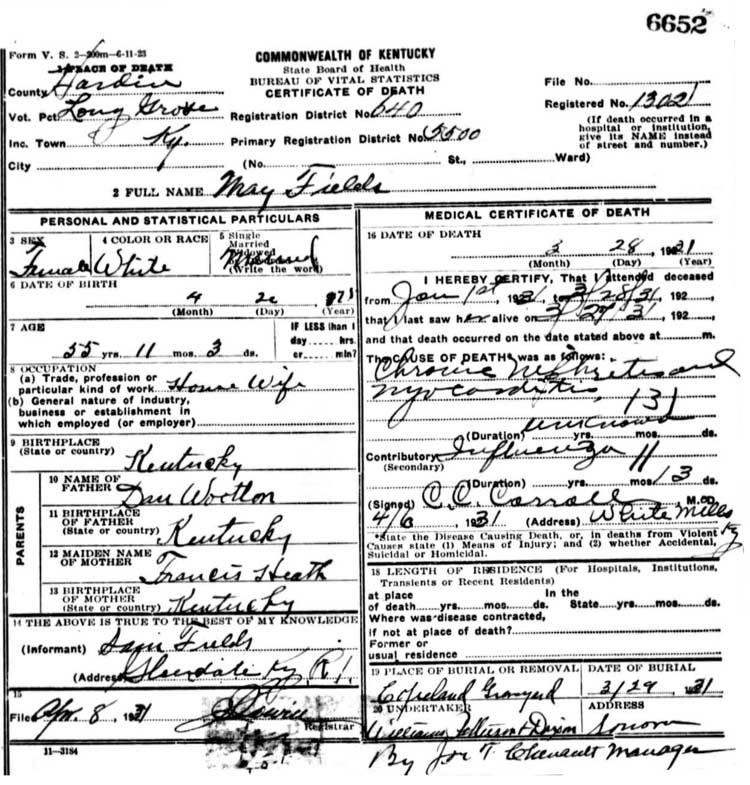 6652
Form V. S. 2-200m-6-11-23
1 PLACE OF DEATH
County Hardin
Vot. Pct Long Grove
Inc. Town Ky.
City
COMMONWEALTH OF KENTUCKY
State Board of Health
BUREAU OF VITAL STATISTICS
CERTIFICATE OF DEATH
Registration District No. 640
Primary Registration District No. 5500
(No. St., Ward)
File No.
Registered No. 1302
(If death occurred in a
hospital or institution,
give its NAME instead
of street and number.)
2 FULL NAME May Fields
PERSONAL AND STATISTICAL PARTICULARS
3 SEX
Female
4 COLOR OR RACE
White
5 Single
Married
Widowed
Married
(Write the word)
6 DATE OF BIRTH
4
(Month) (Day) (Year)
7 AGE
55 yrs. 11 mos. 3 ds.
IF LESS than 1
day hrs.
or min?
8 OCCUPATION
(a) Trade, profession or
particular kind of work House Wife
(b) General nature of industry,
business or establishment in
which employed (or employer)
9 BIRTHPLACE
(State or country)
Kentucky
PARENTS
10 NAME OF
FATHER
Dan Wootton
11 BIRTHPLACE
OF FATHER
(State or country) Kentucky
12 MAIDEN NAME
OF MOTHER
Francis Heath
13 BIRTHPLACE
OF MOTHER
(State or country) Kentucky
14 THE ABOVE IS TRUE TO THE BEST OF MY KNOWLEDGE
(Informant) Fields
(Address) Glendale Ky R 1.
15
Filed Apr. 8, 1931
Registrar
11-3184
MEDICAL CERTIFICATE OF DEATH
16 DATE OF DEATH
3 28 1931
(Month) (Day) (Year)
I HEREBY CERTIFY, That I attended deceased
from Jan 1st, 1931 to 3/28/31, 192
that I last saw her alive on 3/27/31, 192
and that death occurred on the date stated above at m.
The CAUSE OF DEATH* was as follows:
Chronic Nephretes and
myocarditis, 131
unknown
(Duration) yrs. mos. ds.
Contributory Influenza 11
(Secondary)
(Duration) yrs. mos. 13 ds.
(Signed) C. C. Carroll M. D.
4/6 1931 (Address) White Mills
Ky
*State the Disease Causing Death, or, in deaths from Violent
Causes state (1) Means of Injury; and (2) whether Accidental,
Suicidal or Homicidal.
18 LENGTH OF RESIDENCE (For Hospitals, Institutions,
Transients or Recent Residents)
at place In the
of death yrs. mos. ds. State yrs. mos. ds.
Where was disease contracted,
If not at place of death?
Former or
usual residence
19 PLACE OF BURIAL OR REMOVAL
Copeland Graveyard
DATE OF BURIAL
3/29 1931
20 UNDERTAKER
Williams Jefferson & Dixon
ADDRESS
Sonora
By Joe T. Chenault Manager